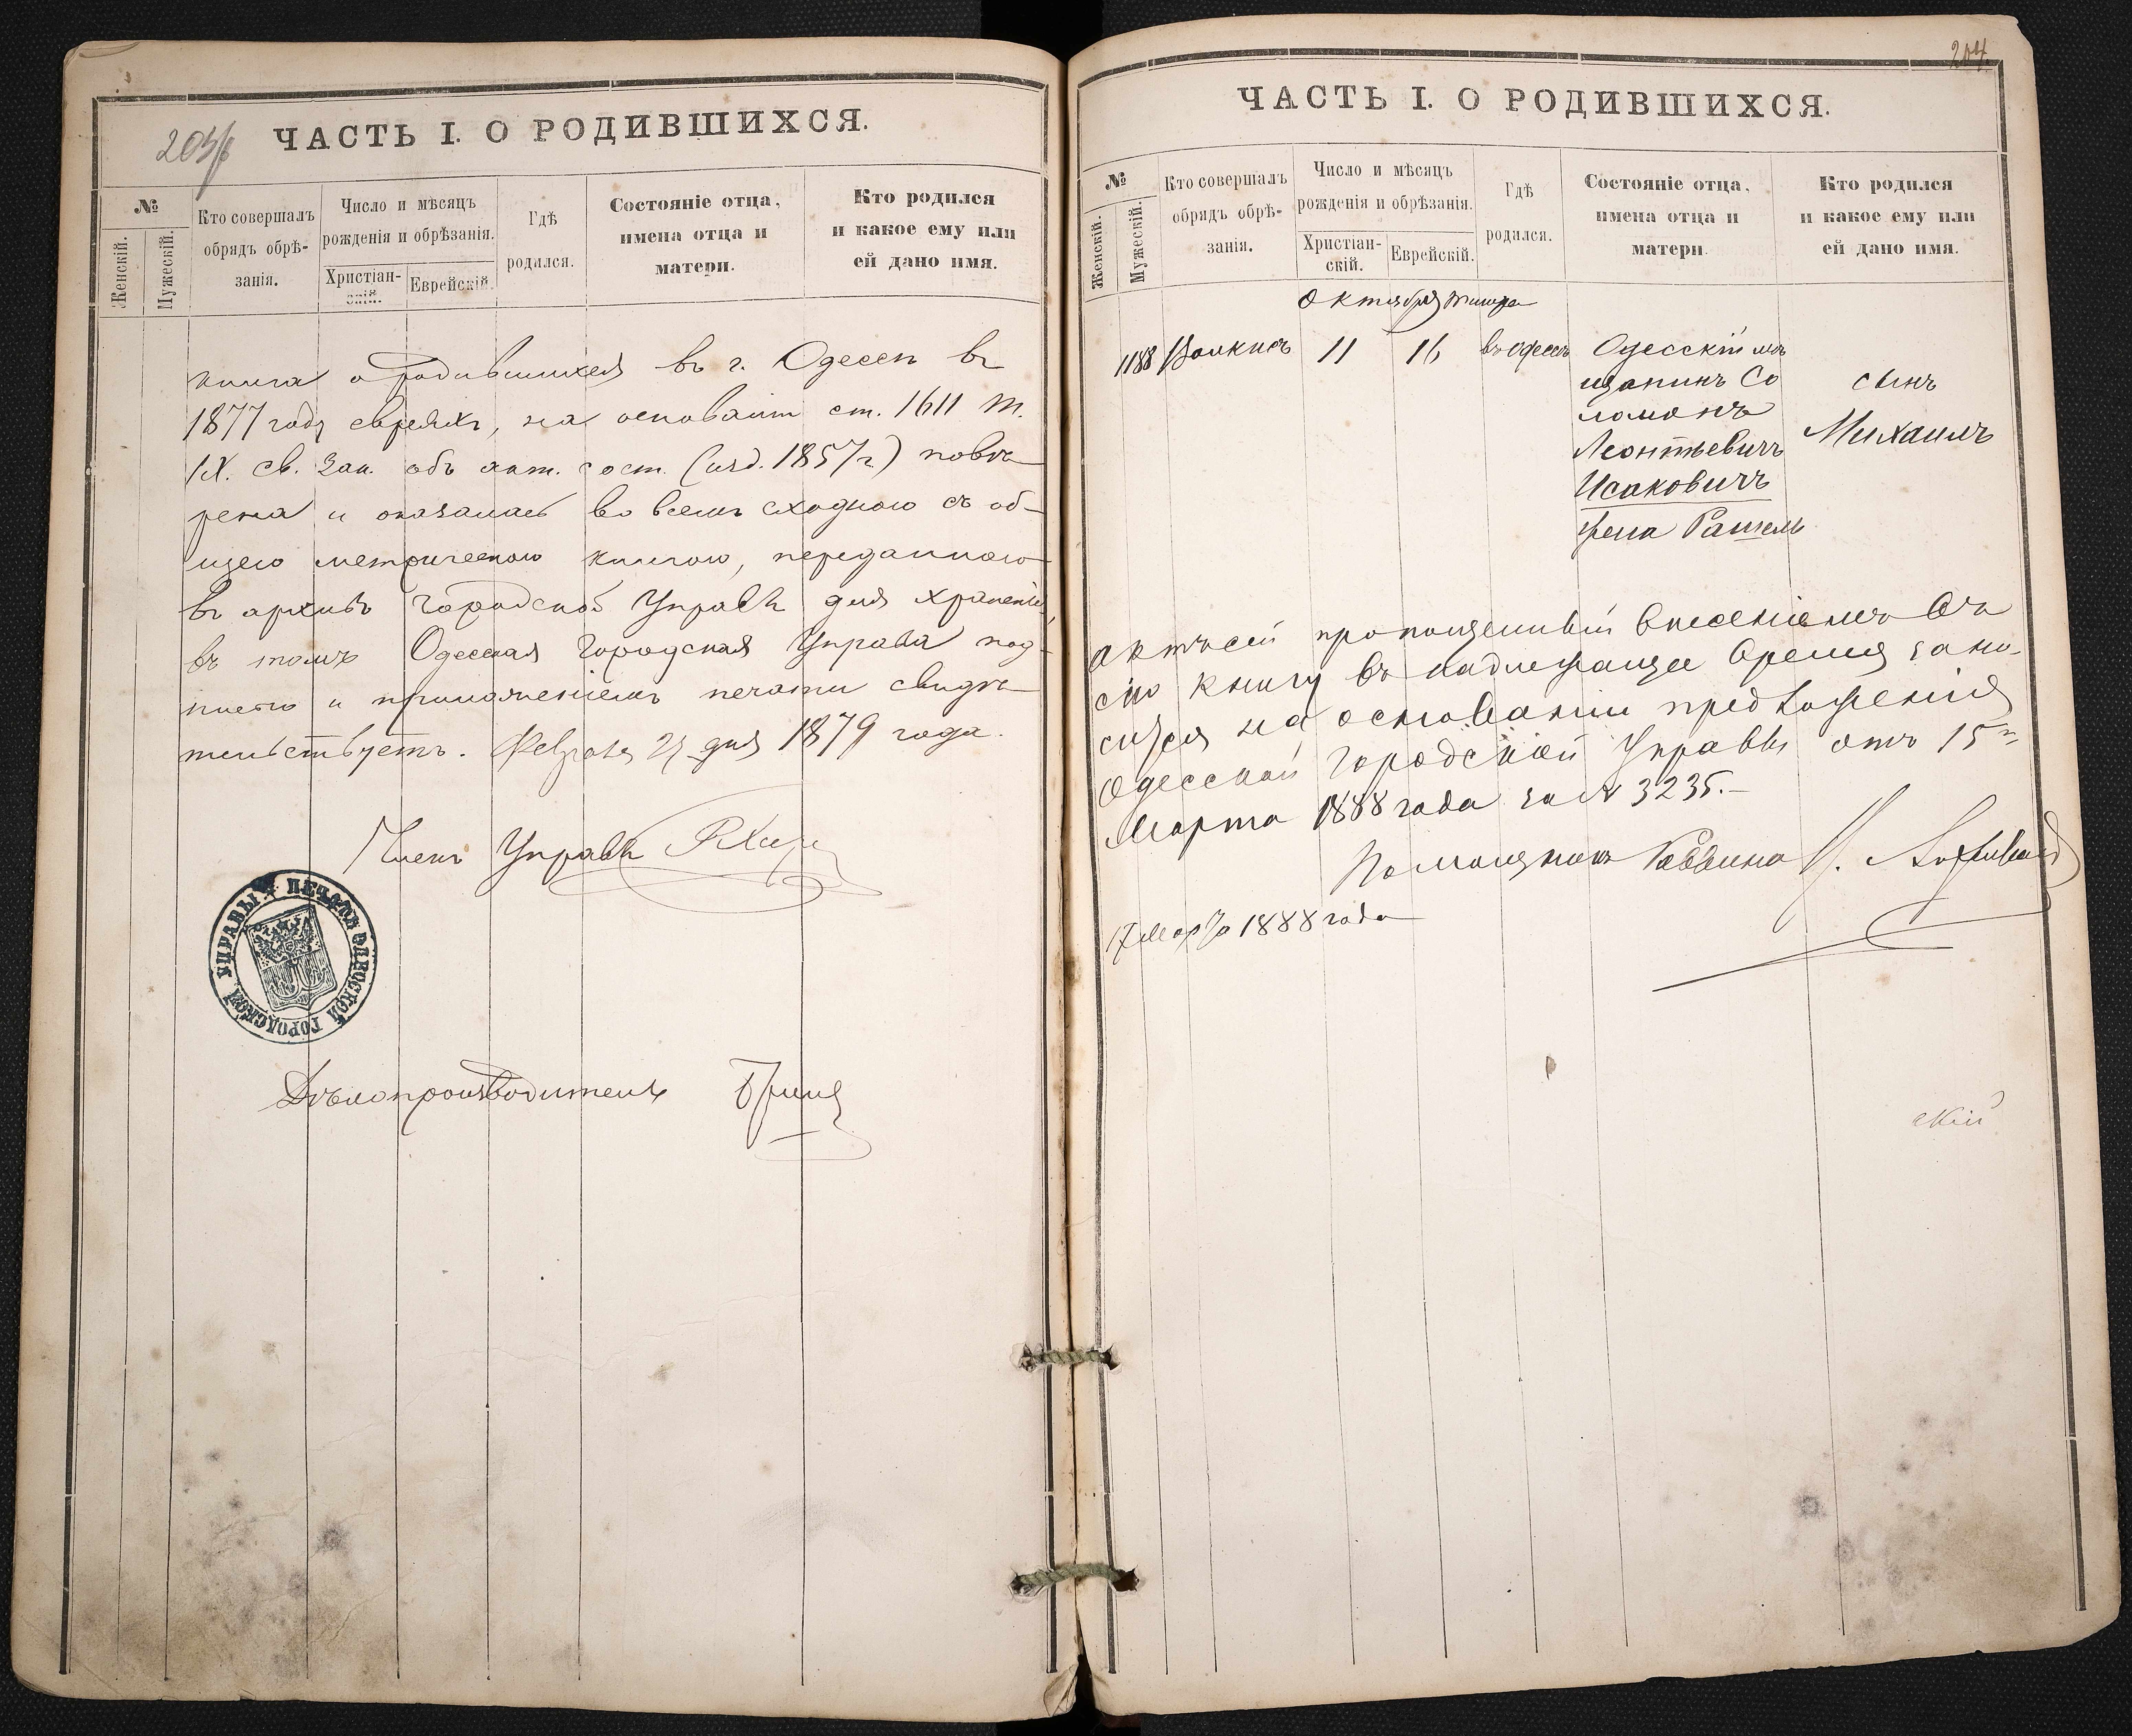 ЧАСТЬ I. О РОДИВШИХСЯ.
№
Женскій.
Мужескій.
Кто совершалъ
обрядъ обрѣ-
занія.
Число и мѣсяцъ
рожденія и обрѣзанія.
Христіан-
скій.
Еврейскій.
Гдѣ
родился.
Состояніе отца,
имена отца и
матери.
Кто родился
и какое ему или
ей дано имя.
книга о родившихся въ г. Одессѣ въ
1877 году евреяхъ, на основаніи ст. 1611 т.
IX. св. Зак. объ акт. сост. (изд. 1857 г.) повѣ-
рена и оказалась во всемъ сходною съ об-
щею метрическою книгою, переданною
въ архивъ Городской Управы для храненія,
въ томъ Одесская Городская Управа под-
писью и приложеніемъ печати свидѣ-
тельствуетъ. Февраля дня 1879 года.
Членъ Управы
ПЕЧАТЬ ОДЕССКОЙ ГОРОДСКОЙ УПРАВЫ
Дѣлопроизводитель
204
ЧАСТЬ I. О РОДИВШИХСЯ.
№
Женскій.
Мужескій.
Кто совершалъ
обрядъ обрѣ-
занія.
Число и мѣсяцъ
рожденія и обрѣзанія.
Христіан-
скій.
Еврейскій.
Гдѣ
родился.
Состояніе отца,
имена отца и
матери.
Кто родился
и какое ему или
ей дано имя.
Октября Тишри
1188 11 16 въ Одессѣ Одесскій мѣ
щанинъ Со
ломонъ
Леонтьевичъ
Исаковичъ
жена Рашель
сынъ
Михаилъ
Актъ сей пропущенный внесеніемъ въ
сію книгу въ надлежащее время зано-
сится на основаніи предложенія
Одесской Городской Управы отъ 15го
Марта 1888 года за № 3235.—
Помощникъ Раввина
17 Марта 1888 года
скій